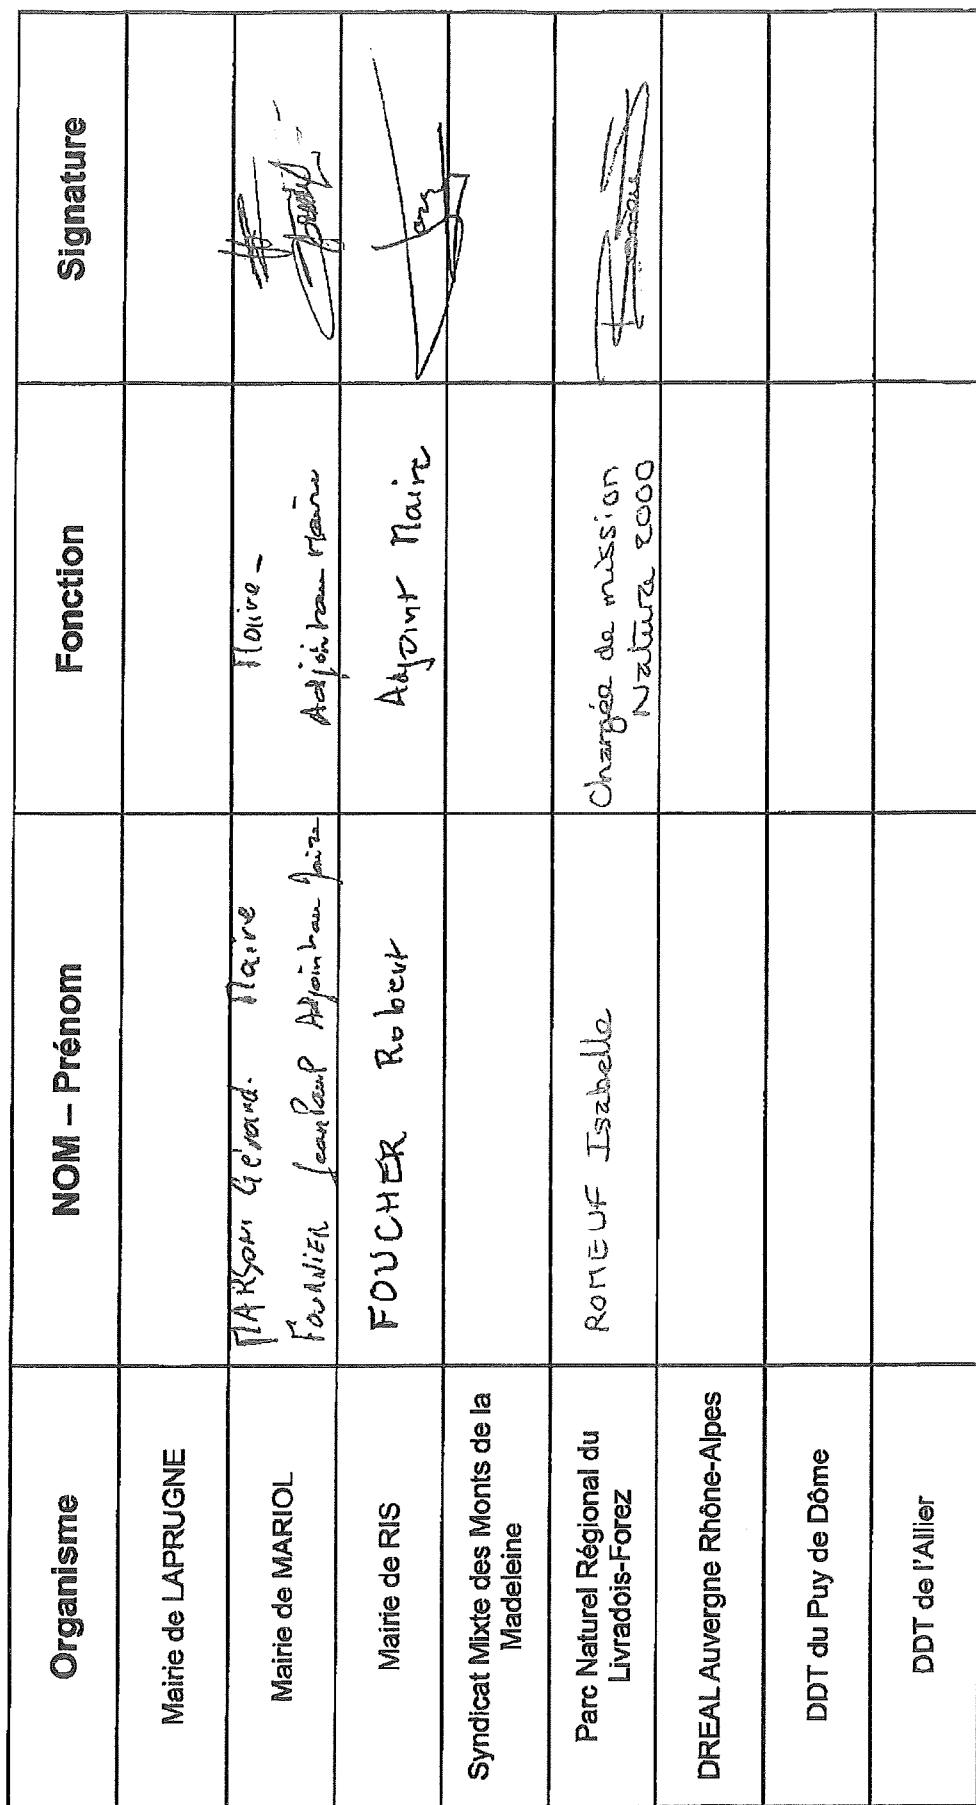 Organisme NOM – Prénom Fonction Signature
Mairie de LAPRUGNE
Mairie de MARIOL
Gérard. Maire
Maire -
FOURNIER Jean Paul Adjoint au Maire
Adjoint au Maire
Mairie de RIS FOUCHER Robert Adjoint Maire
Syndicat Mixte des Monts de la
Madeleine
Parc Naturel Régional du
Livradois-Forez
ROMEUF Isabelle
Chargée de mission
Natura 2000
DREAL Auvergne Rhône-Alpes
DDT du Puy de Dôme
DDT de l'Allier